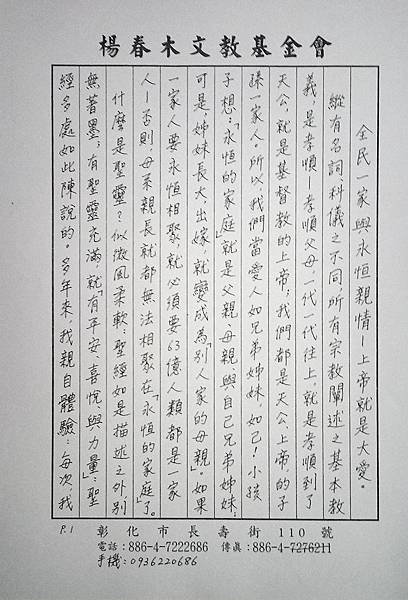 楊春木文教基金會
全民一家與永恒親情—上帝就是大愛。
縱有名詞科儀之不同,所有宗教闡述之基本教
義,是孝順—孝順父母,一代一代往上,就是孝順到了
天公,就是基督教的上帝;我們都是天公、上帝的子
孫一家人。所以我們當愛人如兄弟姊妹、如己!小孩
子想:「永恒的家庭」就是父親、母親與自己兄弟姊妹;
可是,姊妹長大出嫁,就變成為「別人家的母親」。如果
一家人要永恒相聚,就必須要63億人類都是一家
人—否則母系親長就都無法相聚在「永恒的家庭」了。
什麼是聖靈?似微風柔軟,聖經如是描述之外別
無著墨;有聖靈充滿,就「有平安、喜悅、與力量」:聖
經多處如此陳說的。多年來,我親自體驗:每次,我
P.1
彰化市長壽街110號
電話:886-4-7222686 傳真:886-4-7276211
手機:0936220686